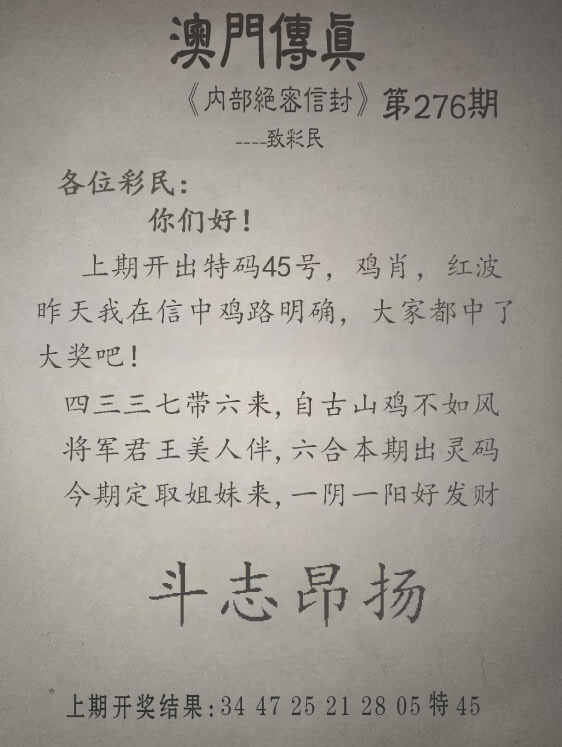 澳門傳真
《内部絕密信封》第276期
----致彩民
各位彩民：
你们好！
上期开出特码45号，鸡肖，红波
昨天我在信中鸡路明确，大家都中了
大奖吧！
四三三七带六来,自古山鸡不如风
将军君王美人伴,六合本期出灵码
今期定取姐妹来,一阴一阳好发财
斗志昂扬
上期开奖结果:34 47 25 21 28 05特45